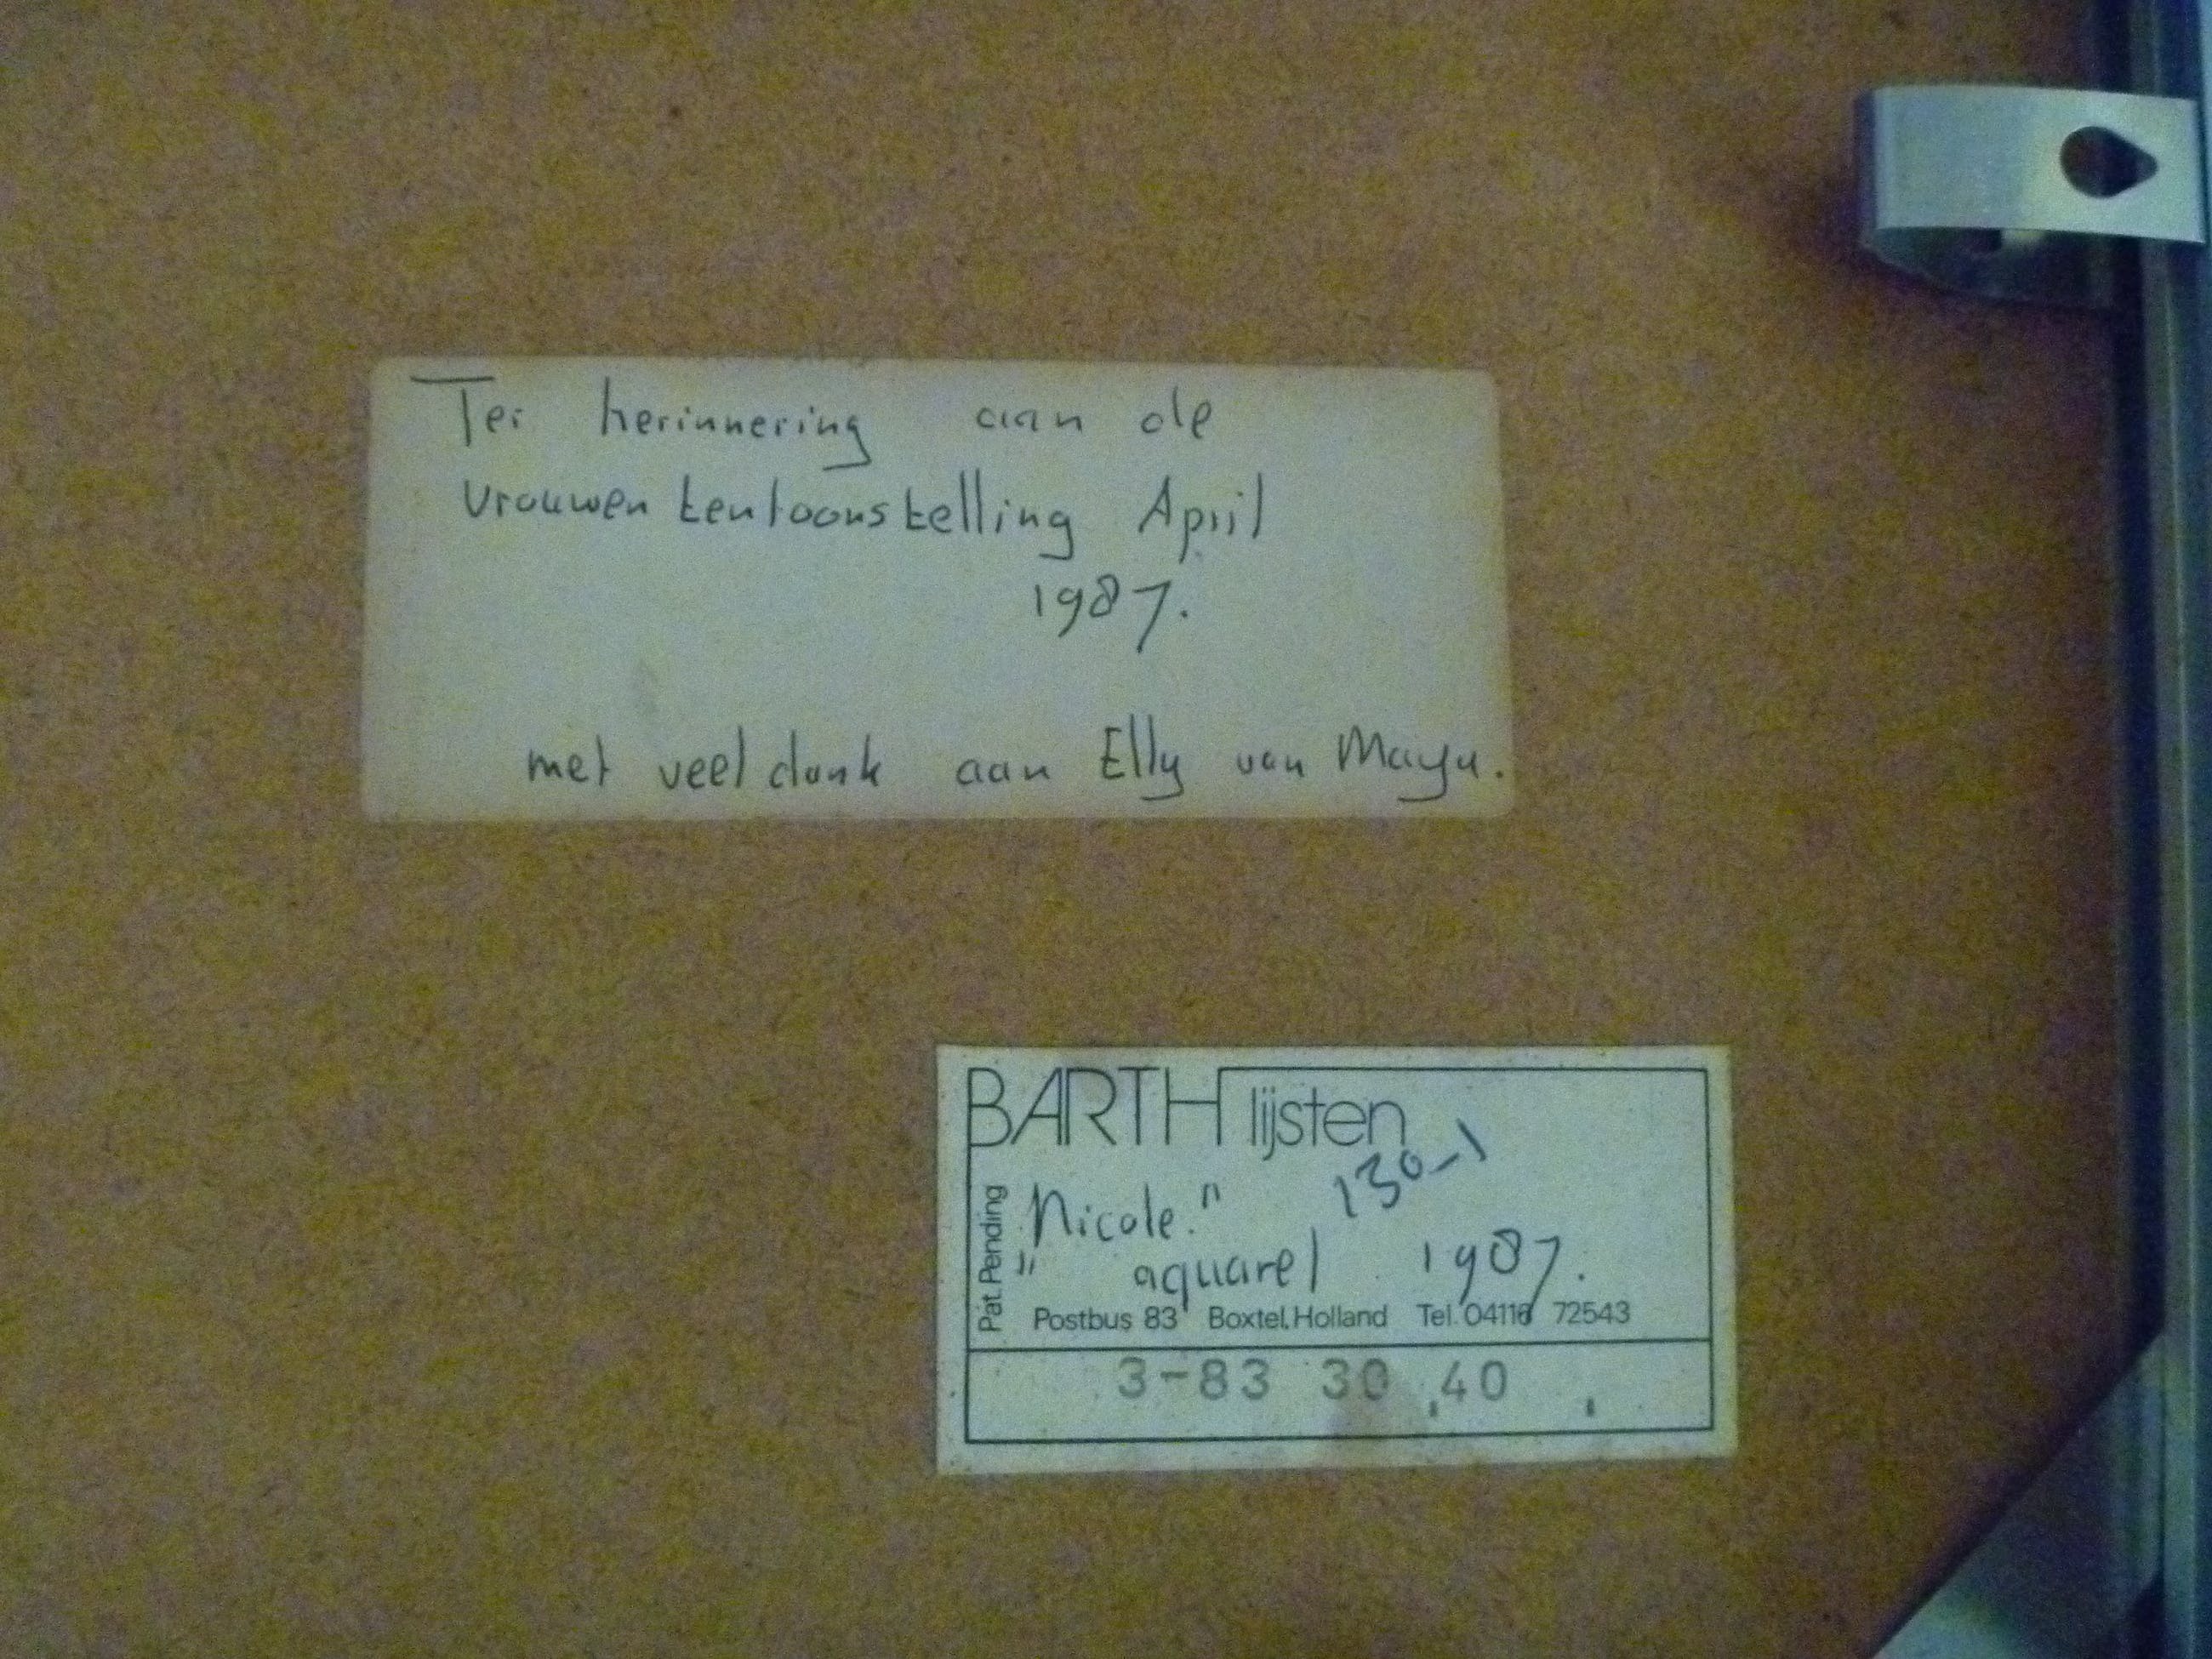 Ter herinnering aan de
vrouwen tentoonstelling April
1987.
met veel dank aan Elly van
BARTH lijsten
130-1
Pat. Pending
"Nicole."
aquarel 1987.
Postbus 83 Boxtel.Holland Tel. 04116 72543
3-83 30 40